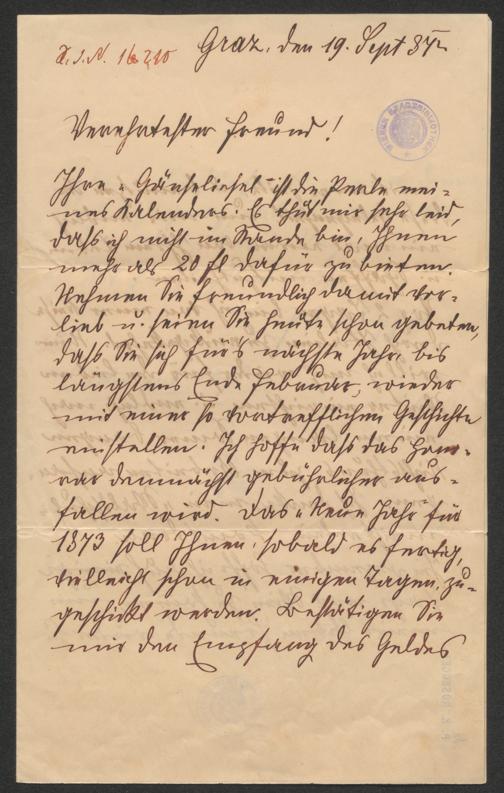 H. I. N. 16210
Graz, den 19. Sept 872
WIENER STADTBIBLIOTHEK
Verehrtester Freund!
Ihre „Gänseliesel" ist die Perle mei=
nes Kalenders. Es thut mir sehr leid,
daß ich nicht im Stande bin, Ihnen
mehr als 20 fl dafür zu bieten.
Nehmen Sie freundlich damit vor=
lieb u. seien Sie heute schon gebeten,
daß Sie sich für's nächste Jahr, bis
längstens Ende Februar, wieder
mit einer so vortrefflichen Geschichte
einstellen. Ich hoffe daß das Hono=
rar demnächst gebührlicher aus=
fallen wird. Das „Neue Jahr" für
1873 soll Ihnen, sobald es fertig,
vielleicht schon in einigen Tagen, zu=
geschickt werden. Bestätigen Sie
mir den Empfang des Geldes